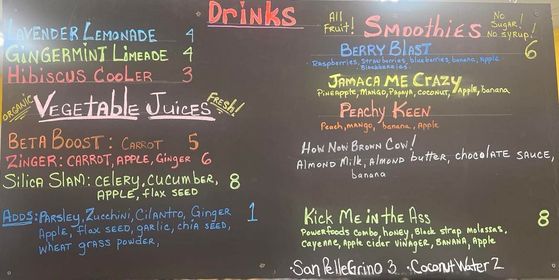 Drinks
LAVENDER LEMONADE 4
GINGERMINT LIMEADE 4
HIBISCUS COOLER 3
ORGANIC VEGETABLE JUICES FRESH!
BETA BOOST: CARROT 5
ZINGER: CARROT, APPLE, GINGER 6
SILICA SLAM: CELERY, CUCUMBER, 8
APPLE, FLAX SEED
ADDS: PARSLEY, ZUCCHINI, CILANTRO, GINGER 1
APPLE, FLAX SEED, GARLIC, CHIA SEED,
WHEAT GRASS POWDER,
All Fruit! Smoothies No Sugar! No Syrup!
BERRY BLAST 6
Raspberries, Strawberries, blueberries, banana, apple
Blackberries
JAMACA ME CRAZY
PINEAPPLE, MANGO, PAPAYA, COCONUT, Apple, banana
PEACHY KEEN
Peach, MANGO, banana, Apple
HOW NOW BROWN COW!
ALMOND MILK, ALMOND butter, CHOCOLATE SAUCE,
banana
KICK ME IN THE ASS 8
Powerfoods combo, HONEY, Black strap molassas,
CAYENNE, Apple cider VINAGER, BANANA, APPLE
·SAN PELLEGRINO 3 ·COCONUT WATER 2